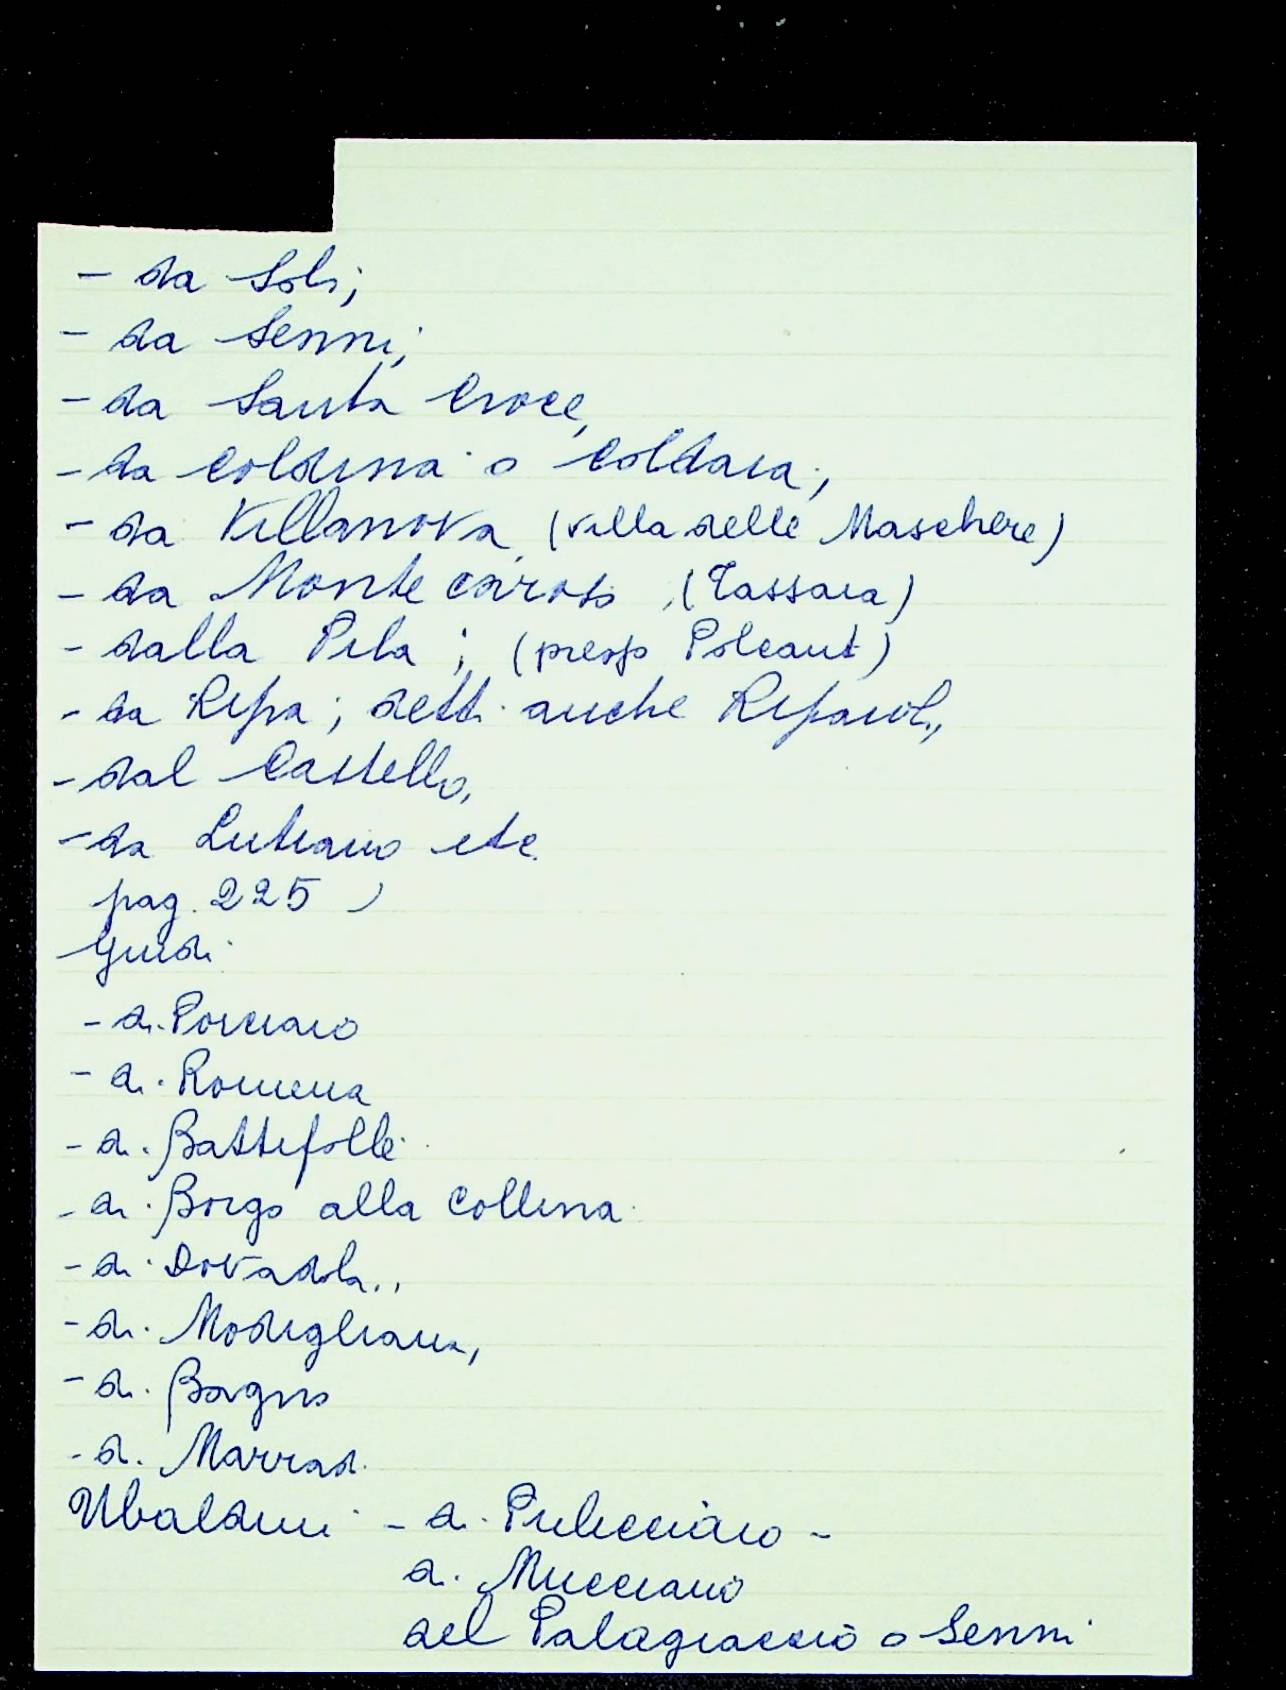 - da Soli;
- da Senni;
- da Santa Croce,
- da Coldina o Coldaia;
- da Villanova (villa delle Maschere)
- da Monte (Tassaia)
- dalla Pila; (presso Polcanto)
- da Ripa; detti anche Ripaioli,
- dal Castello,
- da Lutiano etc.
pag. 225)
Guidi
- di Porciano
- di Romena
- di Battifolle
- di Borgo alla Collina
- di Dovadola,
- di Modigliana,
- di Bagno
- di Marradi
Ubaldini - di Pulicciano -
di Mucciano
del Palagiaccio o Senni